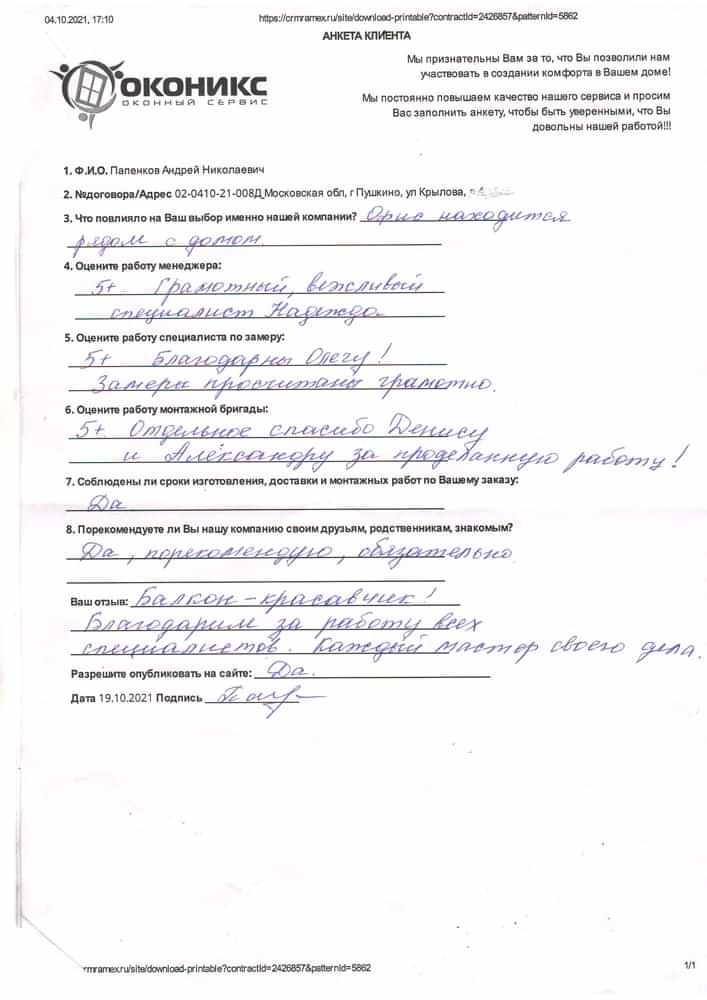 04.10.2021, 17:10 https://crmramex.ru/site/download-printable?contractId=2426857&patternId=5862
АНКЕТА КЛИЕНТА
ОКОНИКС
ОКОННЫЙ СЕРВИС
Мы признательны Вам за то, что Вы позволили нам
участвовать в создании комфорта в Вашем доме!
Мы постоянно повышаем качество нашего сервиса и просим
Вас заполнить анкету, чтобы быть уверенными, что Вы
довольны нашей работой!!!
1. Ф.И.О. Папенков Андрей Николаевич
2. №договора/Адрес 02-0410-21-008Д,Московская обл, г Пушкино, ул Крылова,
3. Что повлияло на Ваш выбор именно нашей компании? Офис находится
рядом с домом.
4. Оцените работу менеджера:
5+ Грамотный, вежливый
специалист Надежда.
5. Оцените работу специалиста по замеру:
5+ Благодарны Олегу!
Замеры просчитаны грамотно.
6. Оцените работу монтажной бригады:
5+. Отдельное спасибо Денису
и Александру за проделанную работу!
7. Соблюдены ли сроки изготовления, доставки и монтажных работ по Вашему заказу:
Да
8. Порекомендуете ли Вы нашу компанию своим друзьям, родственникам, знакомым?
Да, порекомендую, обязательно.
Ваш отзыв: Балкон - красавчик!
Благодарим за работу всех
специалистов. Каждый мастер своего дела.
Разрешите опубликовать на сайте: Да.
Дата 19.10.2021 Подпись
rmramex.ru/site/download-printable?contractId=2426857&patternId=5862 1/1